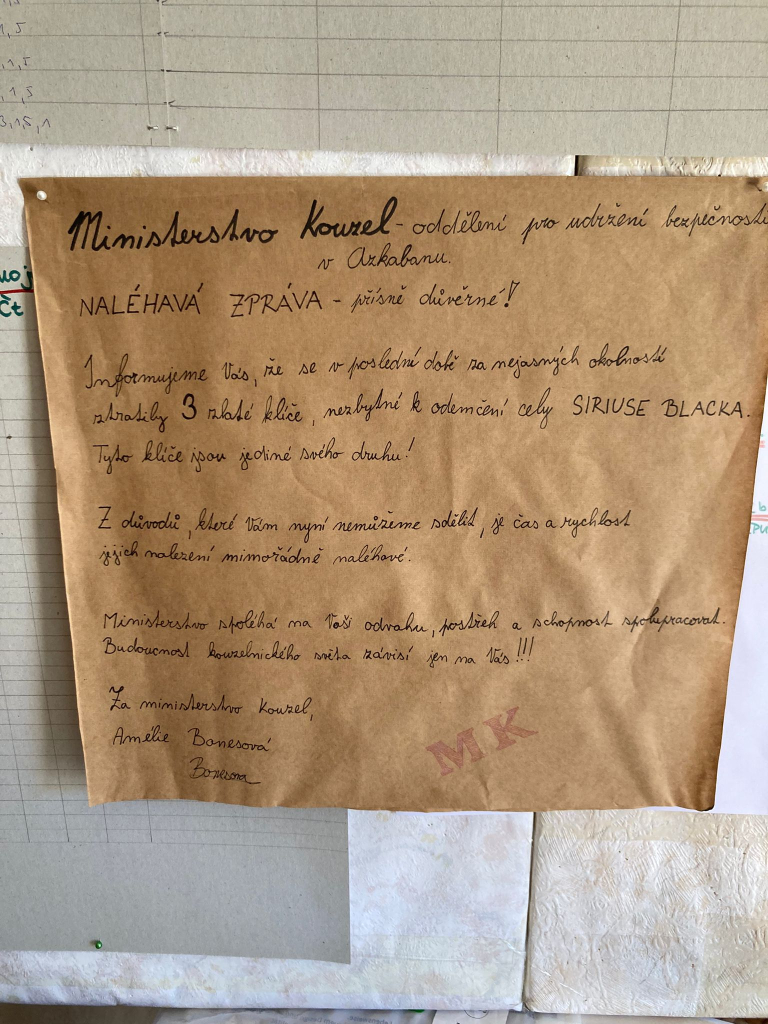 1,5
1,5
1,5
3,15,1
Ministerstvo Kouzel - oddělení pro udržení bezpečnosti
v Azkabanu.
NALÉHAVÁ ZPRÁVA - přísně důvěrné!
Informujeme Vás, že se v poslední době za nejasných okolností
ztratily 3 zlaté klíče, nezbytné k odemčení cely SIRIUSE BLACKA.
Tyto klíče jsou jediné svého druhu!
Z důvodů, které Vám nyní nemůžeme sdělit, je čas a rychlost
jejich nalezení mimořádně naléhavé.
Ministerstvo spoléhá na Vaši odvahu, postřeh a schopnost spolupracovat.
Budoucnost kouzelnického světa závisí jen na Vás!!!
Za ministerstvo kouzel,
Amélie Bonesová
Bonesova
MK
Čt